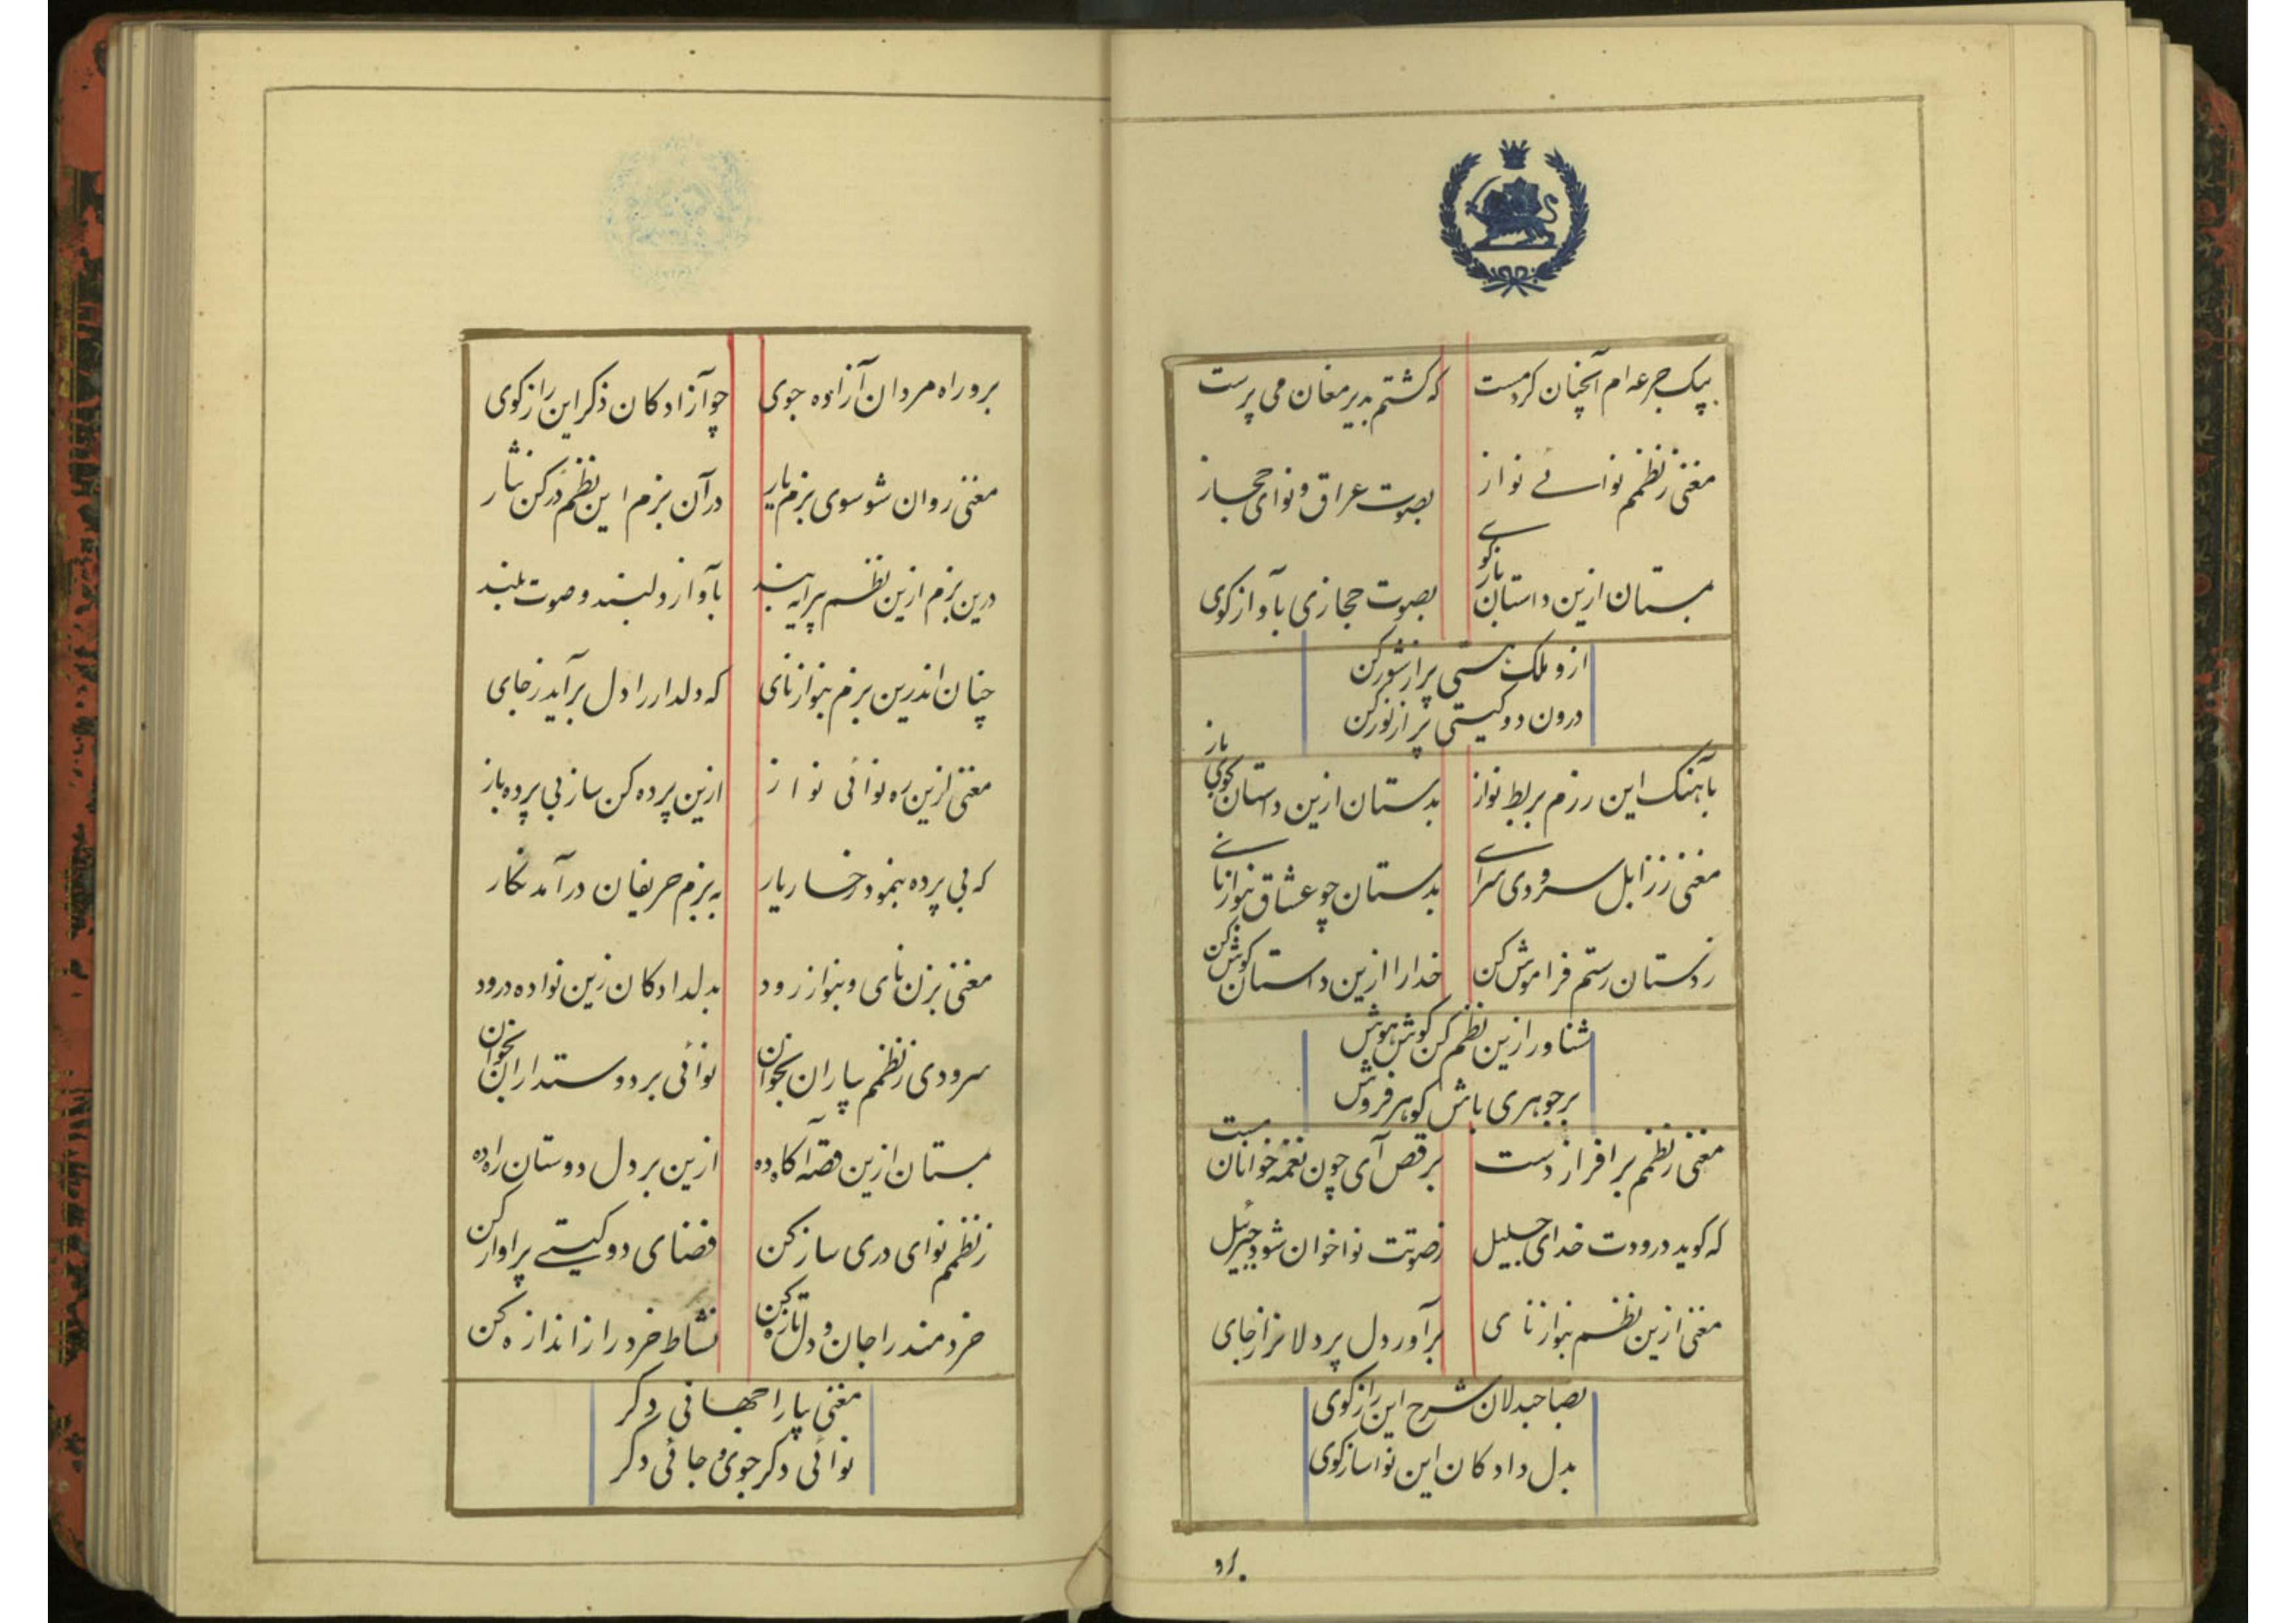 بیک جرعه ام آنچنان کرد مست که گشتم بدیر مغان می پرست
مغنی ز نظمم نوائے نواز بصوت عراق و نوای حجاز
بمستان ازین داستان بازگوے بصوت حجازی بآواز کوی
ازو ملک هستی پر از شور کن
درون دو کیتی پر از نور کن
بآهنک این رزم بربط نواز بدستان ازین داستان کوی باز
مغنی ز زابل سرودی سراے بدستان چو عشاق بنواز نائے
ز دستان رستم فراموش کن خدا را ازین داستان کوش کن
شناور ازین نظم کن کوش هوش
بر جوهری باش کوهر فروش
مغنی ز نظمم برافراز دست برقص آی چون نغمه خوانان مست
که کوید درودت خدای جلیل ز صوتت نواخوان شود جبرئیل
مغنی ازین نظم بنواز نای برآور دل پردلانرا ز جای
بصاحبدلان شرح این راز کوی
بدل دادکان این نوا ساز کوی
برو
برو راه مردان آزاده جوی چو آزادکان ذکر این راز کوی
مغنی روان شو سوی بزم یار در آن بزم این نظم در کن نثار
درین بزم ازین نظم پرایه بند بآواز دلبند و صوت بلند
چنان اندرین بزم بنواز نای که دلدار را دل برآید ز جای
مغنی ازین ره نوائی نواز ازین پرده کن ساز بی پرده باز
که بی پرده بنمود رخسار یار به بزم حریفان درآمد نکار
مغنی بزن نای و بنواز رود بدلدادکان زین نوا ده درود
سرودی ز نظمم بیاران بخوان نوائی بر دوستداران بخوان
بمستان ازین قصه آکاه ده ازین بر دل دوستان راه ده
ز نظمم نوای دری ساز کن فضای دو کیتے پر اواز کن
خردمند را جان و دل تازه کن نشاط خرد را ز اندازه کن
مغنی بیارا جهانی دکر
نوائی دکر جوی و جائی دکر